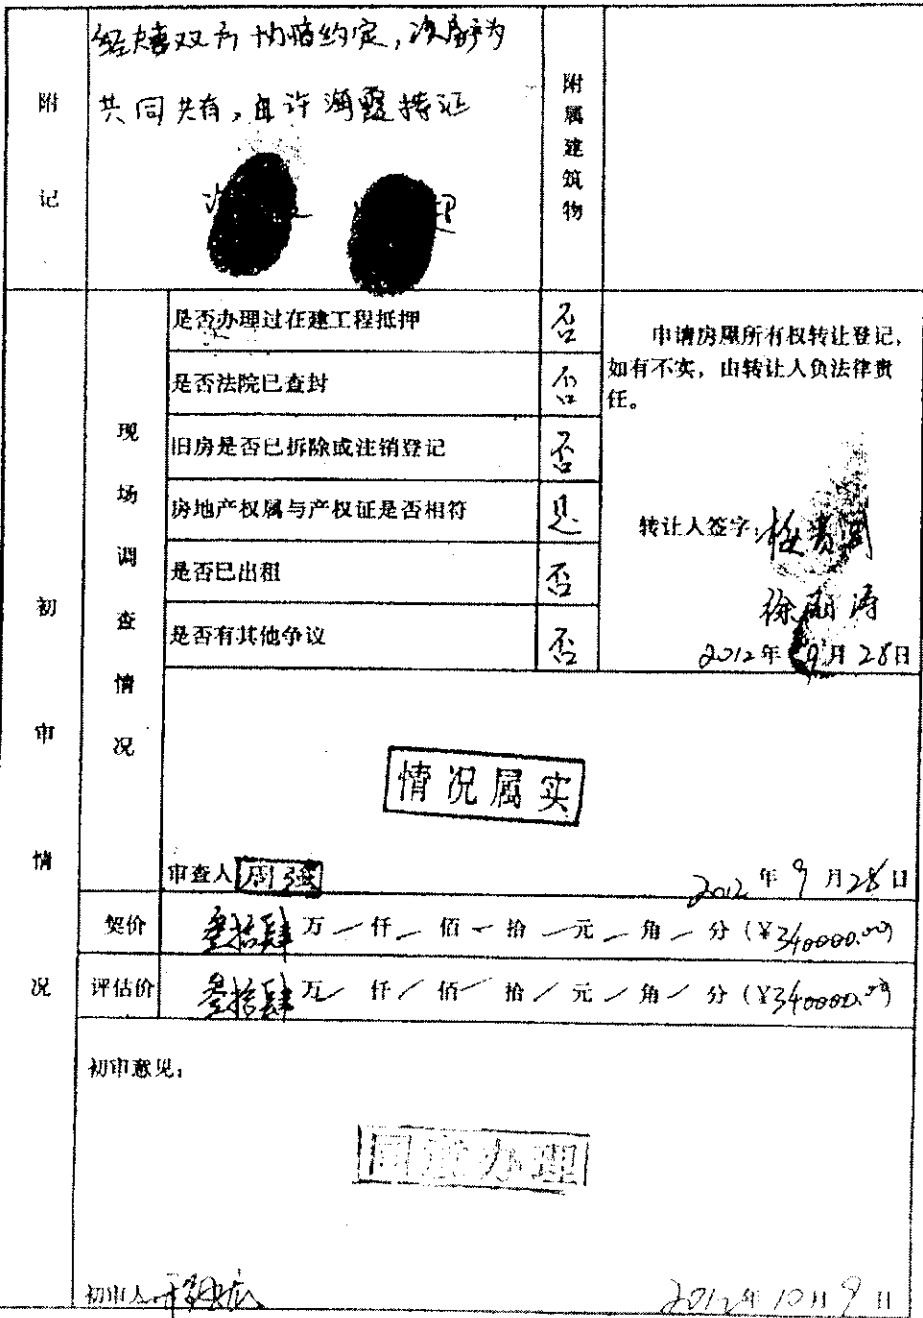 经夫妻双方协商约定，次房产为
共同共有，由许海霞持证
附记
附属建筑物
初审情况
现场调查情况
是否办理过在建工程抵押 否
是否法院已查封 否
旧房是否已拆除或注销登记 否
房地产权属与产权证是否相符 是
是否已出租 否
是否有其他争议 否
申请房屋所有权转让登记，
如有不实，由转让人负法律责
任。
转让人签字：
2012年9月28日
情况属实
审查人 周强
2012年9月28日
契价 叁拾肆万一仟一佰一拾一元一角一分(¥340000.00)
评估价 叁拾肆万/仟/佰/拾/元/角/分(¥340000.00)
初审意见：
同意办理
初审人
2012年10月9日